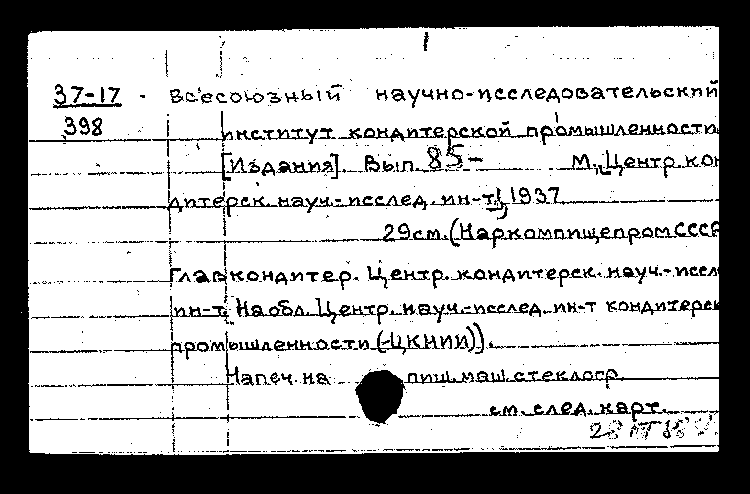 37-17 - Всесоюзный научно-исследовательский
398 институт кондитерской промышленности
[Издания]. Вып. 85- М., Центр. кон
дитерск. науч.-исслед. ин-т, 1937
29см. (Наркомпищепром СССР
Главкондитер. Центр. кондитерск. науч.-иссл
ин-т. На обл. Центр. науч.-исслед. ин-т кондитерск
промышленности (-ЦКНИИ)).
Напеч. на пиш. маш. стеклогр.
см. след. карт.